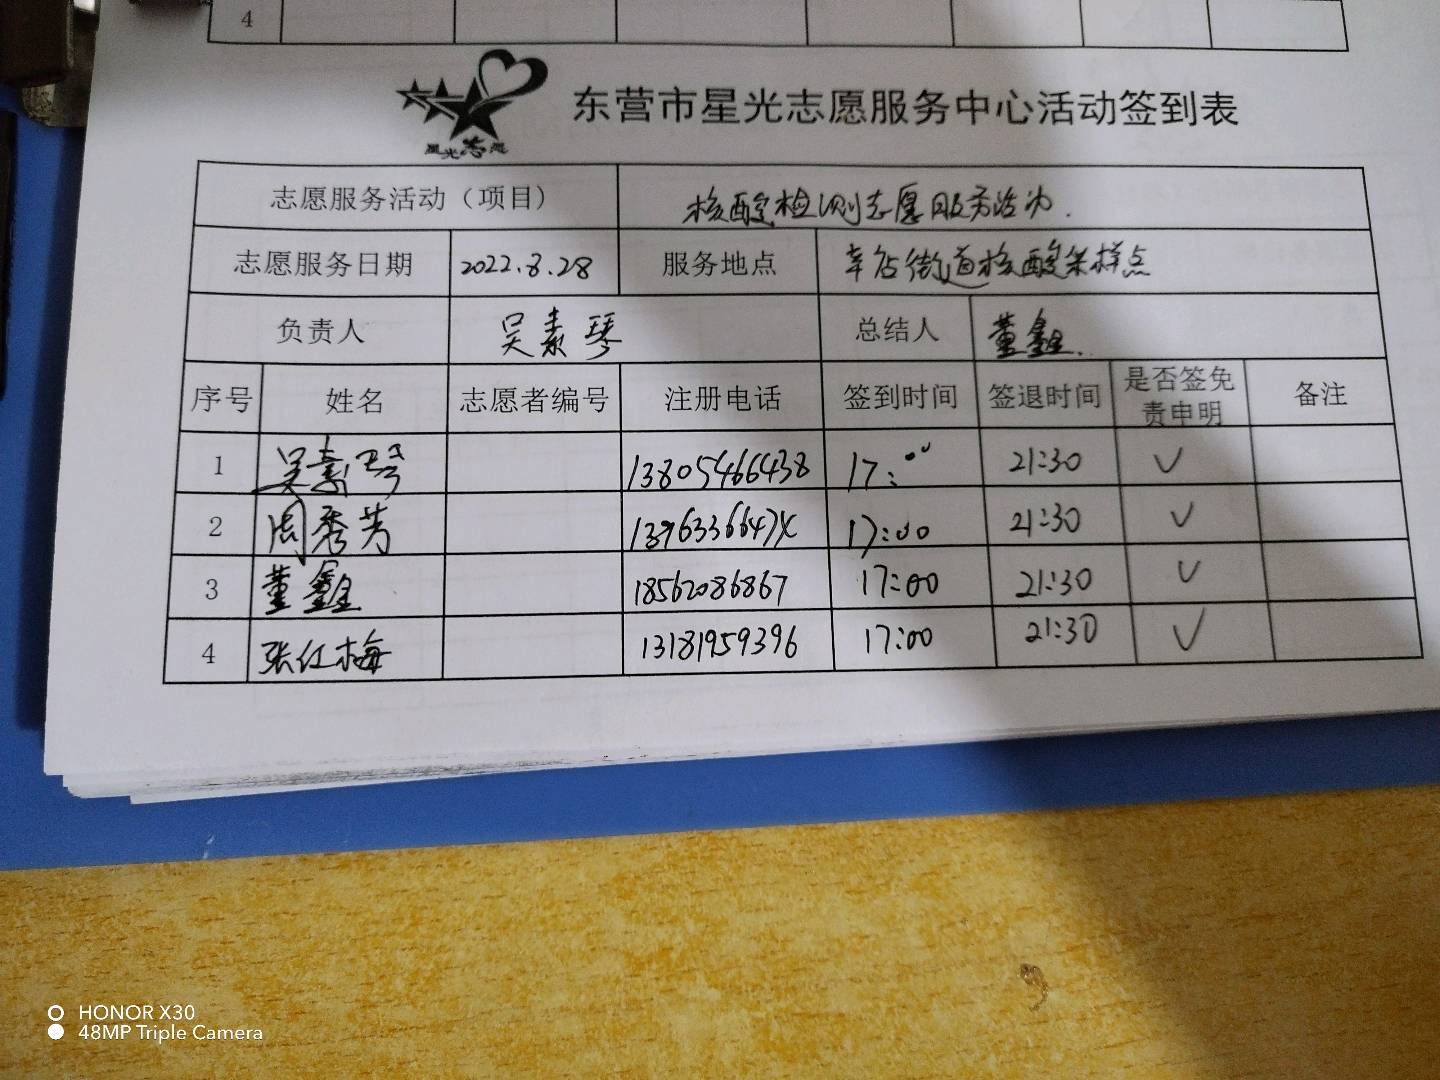 4
星光志愿
东营市星光志愿服务中心活动签到表
志愿服务活动（项目） 核酸检测志愿服务活动.
志愿服务日期 2022.8.28 服务地点 辛店街道核酸采样点
负责人 吴素琴 总结人 董鑫
序号 姓名 志愿者编号 注册电话 签到时间 签退时间 是否签免责申明 备注
1 吴素琴 13805466438 17:00 21:30 ✓
2 周秀芳 17:00 21:30 ✓
3 董鑫 18562086867 17:00 21:30 ✓
4 张红梅 13181959396 17:00 21:30 ✓
HONOR X30
48MP Triple Camera